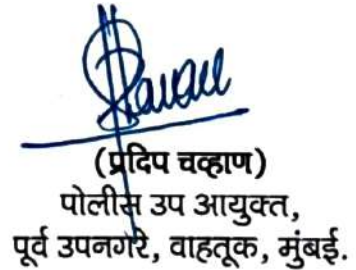 (प्रदिप चव्हाण)
पोलीस उप आयुक्त,
पूर्व उपनगरे, वाहतूक, मुंबई.